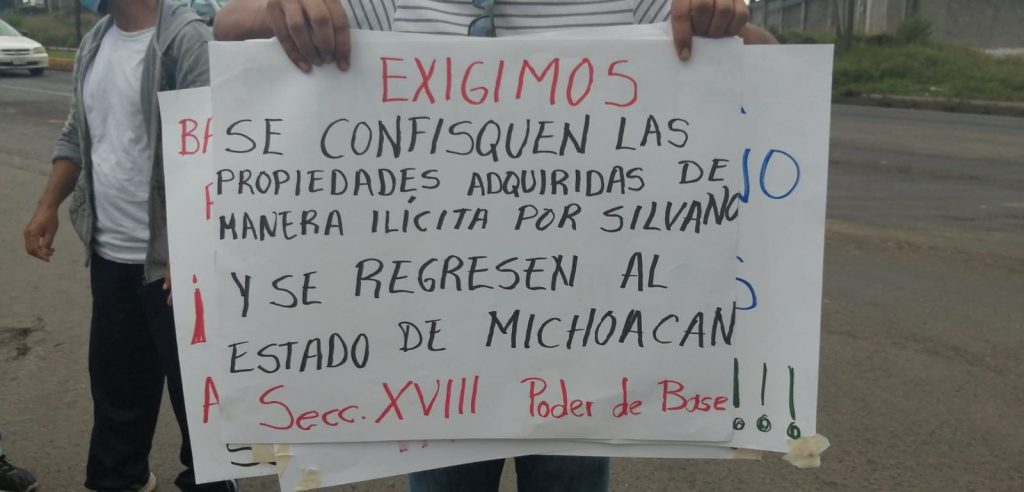 EXIGIMOS
SE CONFISQUEN LAS
PROPIEDADES ADQUIRIDAS DE
MANERA ILÍCITA POR SILVANO
Y SE REGRESEN AL
ESTADO DE MICHOACAN
Secc. XVIII Poder de Base
!!!